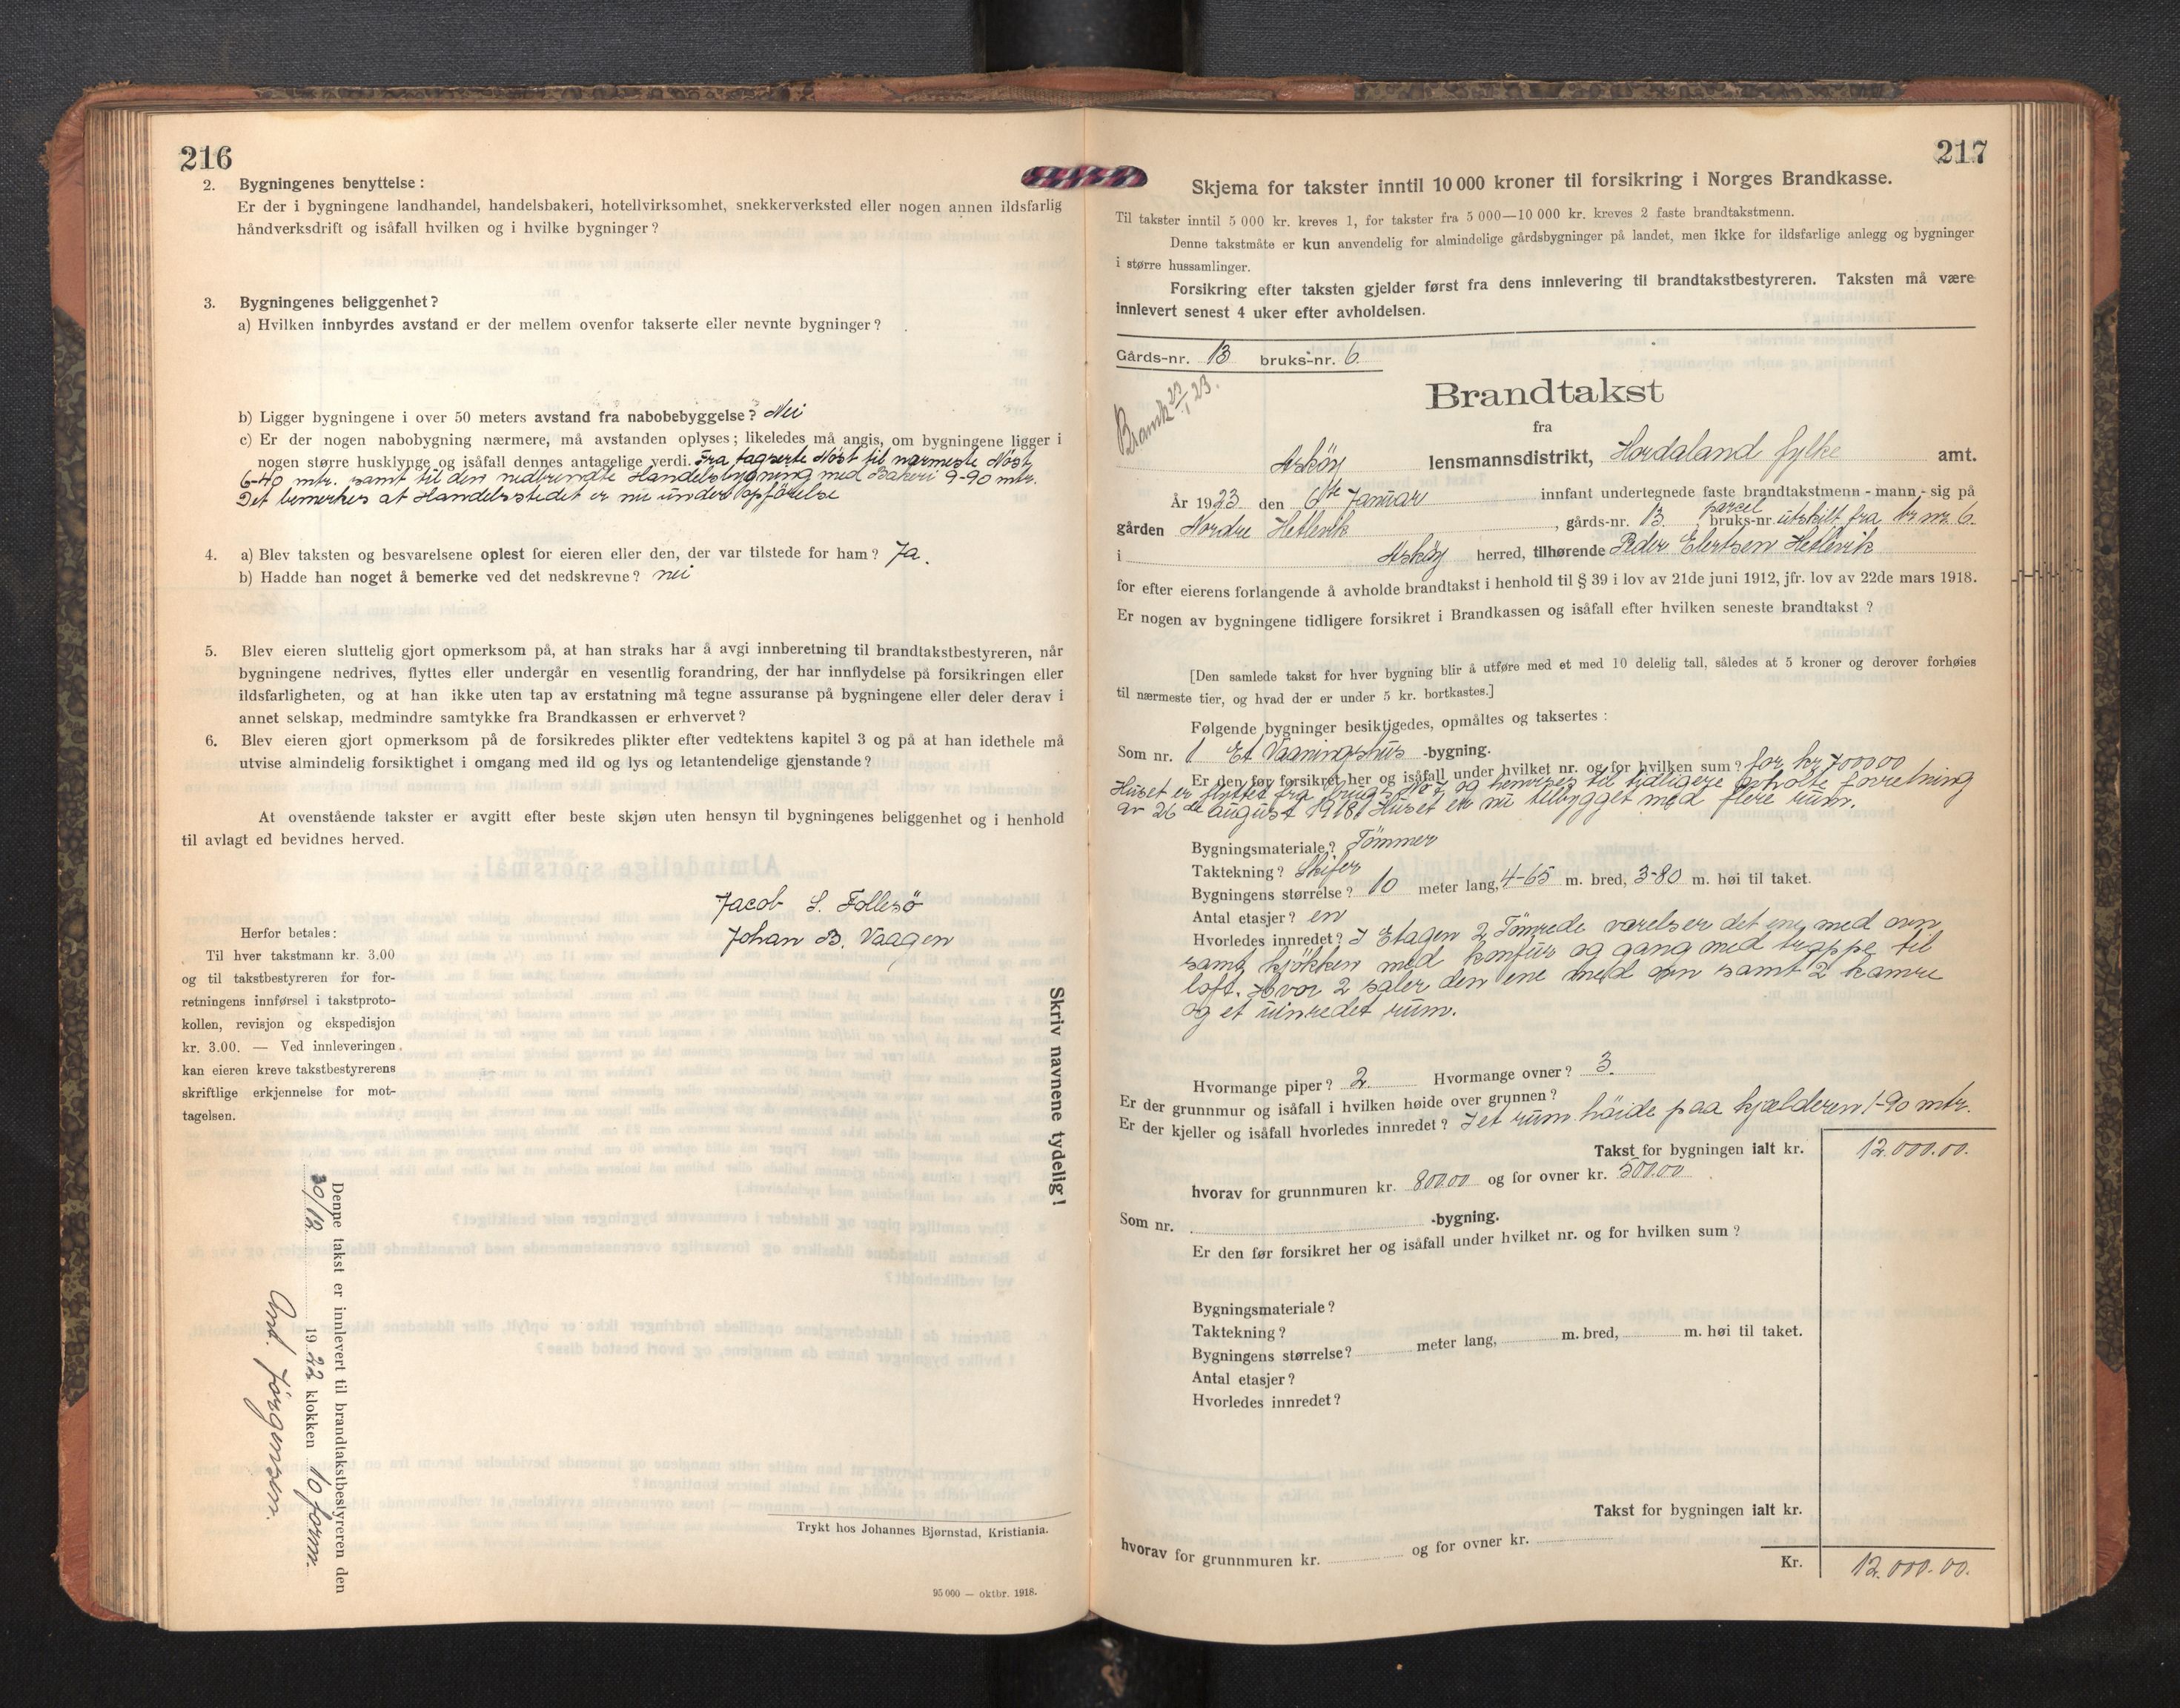 216
2. Bygningenes benyttelse:
Er der i bygningene landhandel, handelsbakeri, hotellvirksomhet, snekkerverksted eller nogen annen ildsfarlig
håndverksdrift og isåfall hvilken og i hvilke bygninger?
3. Bygningenes beliggenhet?
a) Hvilken innbyrdes avstand er der mellem ovenfor takserte eller nevnte bygninger?
b) Ligger bygningene i over 50 meters avstand fra nabobebyggelse? Nei
c) Er der nogen nabobygning nærmere, må avstanden oplyses; likeledes må angis, om bygningene ligger i
nogen større husklynge og isåfall dennes antagelige verdi. Fra tagserte Nöst til nærmeste Nöst
6-40 mtr. samt til den nedbrendte Handelsbygning med Bakeri 9-90 mtr.
Det bemerkes at Handelsstedet er nu under opförelse
4. a) Blev taksten og besvarelsene oplest for eieren eller den, der var tilstede for ham? Ja.
b) Hadde han noget å bemerke ved det nedskrevne? nei
5. Blev eieren sluttelig gjort opmerksom på, at han straks har å avgi innberetning til brandtakstbestyreren, når
bygningene nedrives, flyttes eller undergår en vesentlig forandring, der har innflydelse på forsikringen eller
ildsfarligheten, og at han ikke uten tap av erstatning må tegne assuranse på bygningene eller deler derav i
annet selskap, medmindre samtykke fra Brandkassen er erhvervet?
6. Blev eieren gjort opmerksom på de forsikredes plikter efter vedtektens kapitel 3 og på at han idethele må
utvise almindelig forsiktighet i omgang med ild og lys og letantendelige gjenstande?
At ovenstående takster er avgitt efter beste skjøn uten hensyn til bygningenes beliggenhet og i henhold
til avlagt ed bevidnes herved.
Jacob S. Follesö
Johan B. Vaagen
Herfor betales:
Til hver takstmann kr. 3.00
og til takstbestyreren for for-
retningens innførsel i takstproto-
kollen, revisjon og ekspedisjon
kr. 3.00. — Ved innleveringen
kan eieren kreve takstbestyrerens
skriftlige erkjennelse for mot-
tagelsen.
Skriv navnene tydelig!
Denne takst er innlevert til brandtakstbestyreren den
30/12 1922 klokken 10 form.
Ant. Jörgensen.
Trykt hos Johannes Bjørnstad, Kristiania.
95 000 — oktbr. 1918.
217
Skjema for takster inntil 10 000 kroner til forsikring i Norges Brandkasse.
Til takster inntil 5 000 kr. kreves 1, for takster fra 5 000—10 000 kr. kreves 2 faste brandtakstmenn.
Denne takstmåte er kun anvendelig for almindelige gårdsbygninger på landet, men ikke for ildsfarlige anlegg og bygninger
i større hussamlinger.
Forsikring efter taksten gjelder først fra dens innlevering til brandtakstbestyreren. Taksten må være
innlevert senest 4 uker efter avholdelsen.
Gårds-nr. 13 bruks-nr. 6
Brandtakst
fra
Asköy lensmannsdistrikt, Hordaland fylke amt.
År 1923 den 6te Januar innfant undertegnede faste brandtakstmenn - mann - sig på
gården Nordre Hetlevik, gårds-nr. 13. parcel bruks-nr utskilt fra br nr. 6.
i Askøy herred, tilhørende Peder Elertsen Hetlevik
for efter eierens forlangende å avholde brandtakst i henhold til § 39 i lov av 21de juni 1912, jfr. lov av 22de mars 1918.
Er nogen av bygningene tidligere forsikret i Brandkassen og isåfall efter hvilken seneste brandtakst?
[Den samlede takst for hver bygning blir å utføre med et med 10 delelig tall, således at 5 kroner og derover forhøies
til nærmeste tier, og hvad der er under 5 kr. bortkastes.]
Følgende bygninger besiktigedes, opmåltes og taksertes:
Som nr. 1 Et Vaaningshus -bygning.
Er den før forsikret her og isåfall under hvilket nr. og for hvilken sum? for kr 7000 00
Huset er flyttet fra og henvises til tidligere avholte forretning
av 26de august 1918. Huset er nu tilbygget med flere rum.
Bygningsmateriale? Tömmer
Taktekning? Skifer
Bygningens størrelse? 10 meter lang, 4-65 m. bred, 3-80 m. høi til taket.
Antal etasjer? en
Hvorledes innredet? I Etagen 2 Tömrede værelser det ene med ovn
samt kjökken med komfur og gang med trappe til
loft. Hvor 2 saler den ene med ovn samt 2 kamre
og et uinredet rum.
Hvormange piper? 2. Hvormange ovner? 3.
Er der grunnmur og isåfall i hvilken høide over grunnen?
Er der kjeller og isåfall hvorledes innredet? I et rum höide paa kjælderen 1-90 mtr.
Takst for bygningen ialt kr. 12.000.00.
hvorav for grunnmuren kr. 800.00 og for ovner kr. 500.00
Som nr. -bygning.
Er den før forsikret her og isåfall under hvilket nr. og for hvilken sum?
Bygningsmateriale?
Taktekning?
Bygningens størrelse? meter lang, m. bred, m. høi til taket.
Antal etasjer?
Hvorledes innredet?
Takst for bygningen ialt kr.
hvorav for grunnmuren kr. og for ovner kr.
Kr. 12.000.00.